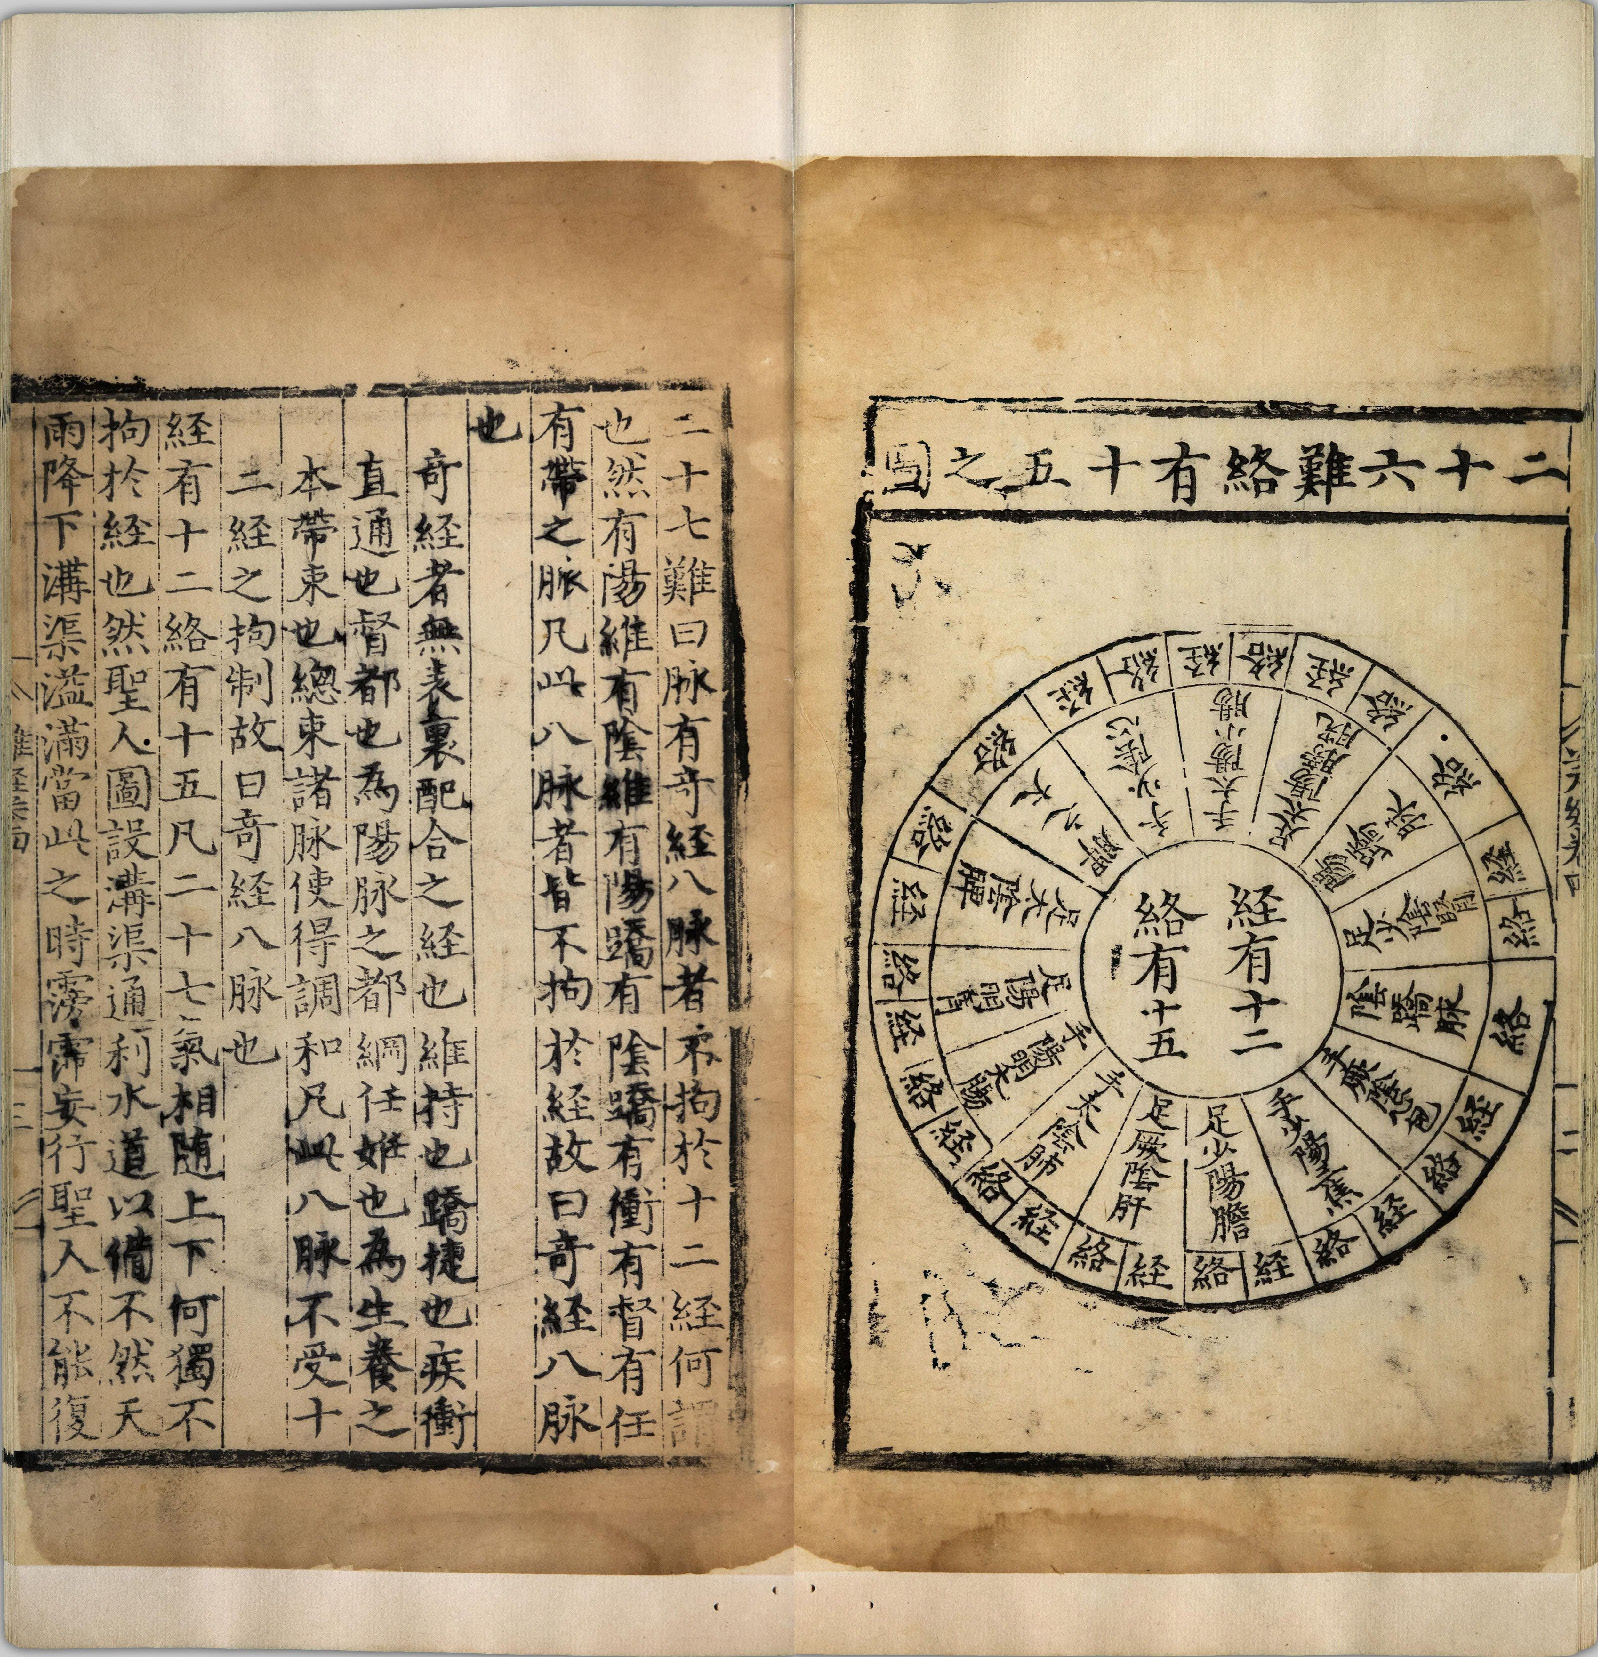 二十六難絡有十五之圖
経有十二
絡有十五
足少陽膽
足厥陰肝
手太陰肺
手陽明大腸
足陽明胃
足太陰脾
脾之大
手少陰心
手太陽小腸
足太陽膀胱
陽蹻脉
足少陰腎
陰蹻脉
手厥陰心包
手少陽三焦
経
絡
経
絡
経
絡
経
絡
経
絡
経
絡
絡
経
絡
経
絡
経
絡
絡
経
絡
絡
経
絡
経
絡
二十七難曰脉有奇経八脉者不拘於十二経何謂
也然有陽維有陰維有陽蹻有陰蹻有衝有督有任
有帶之脈凡此八脉者皆不拘於経故曰奇経八脉
也
奇経者無表裏配合之経也維持也蹻捷也疾衝
直通也督都也為陽脉之都綱任姙也為生養之
本帶束也總束諸脉使得調和凡此八脉不受十
二経之拘制故曰奇経八脉也
経有十二絡有十五凡二十七氣相随上下何獨不
拘於経也然聖人圖設溝渠通利水道以備不然天
雨降下溝渠溢滿當此之時霶霈妄行聖人不能復
難経卷四